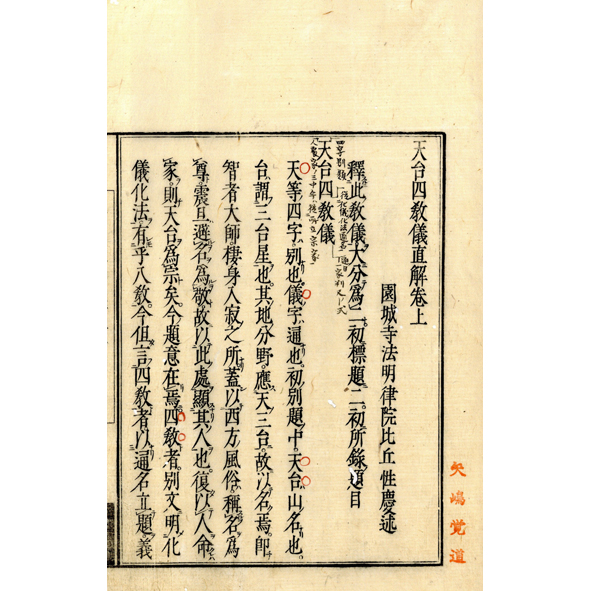 天台四教儀直解卷上
園城寺法明律院比丘性慶述
釋此教儀大分爲二初標題二初所錄題目
天台四教儀
天等四字別也儀字通也初別題中天台山名也
台謂三台星也其地分野應天三台故以名焉即
智者大師棲身入寂之所蓋以西方風俗稱名爲
尊震旦避名爲敬故以此處顯其人也復以人命
家則天台爲宗矣今題意在焉四教者別文明化
儀化法有乎八教今但言四教者以通名立題義
矢嶋覚道